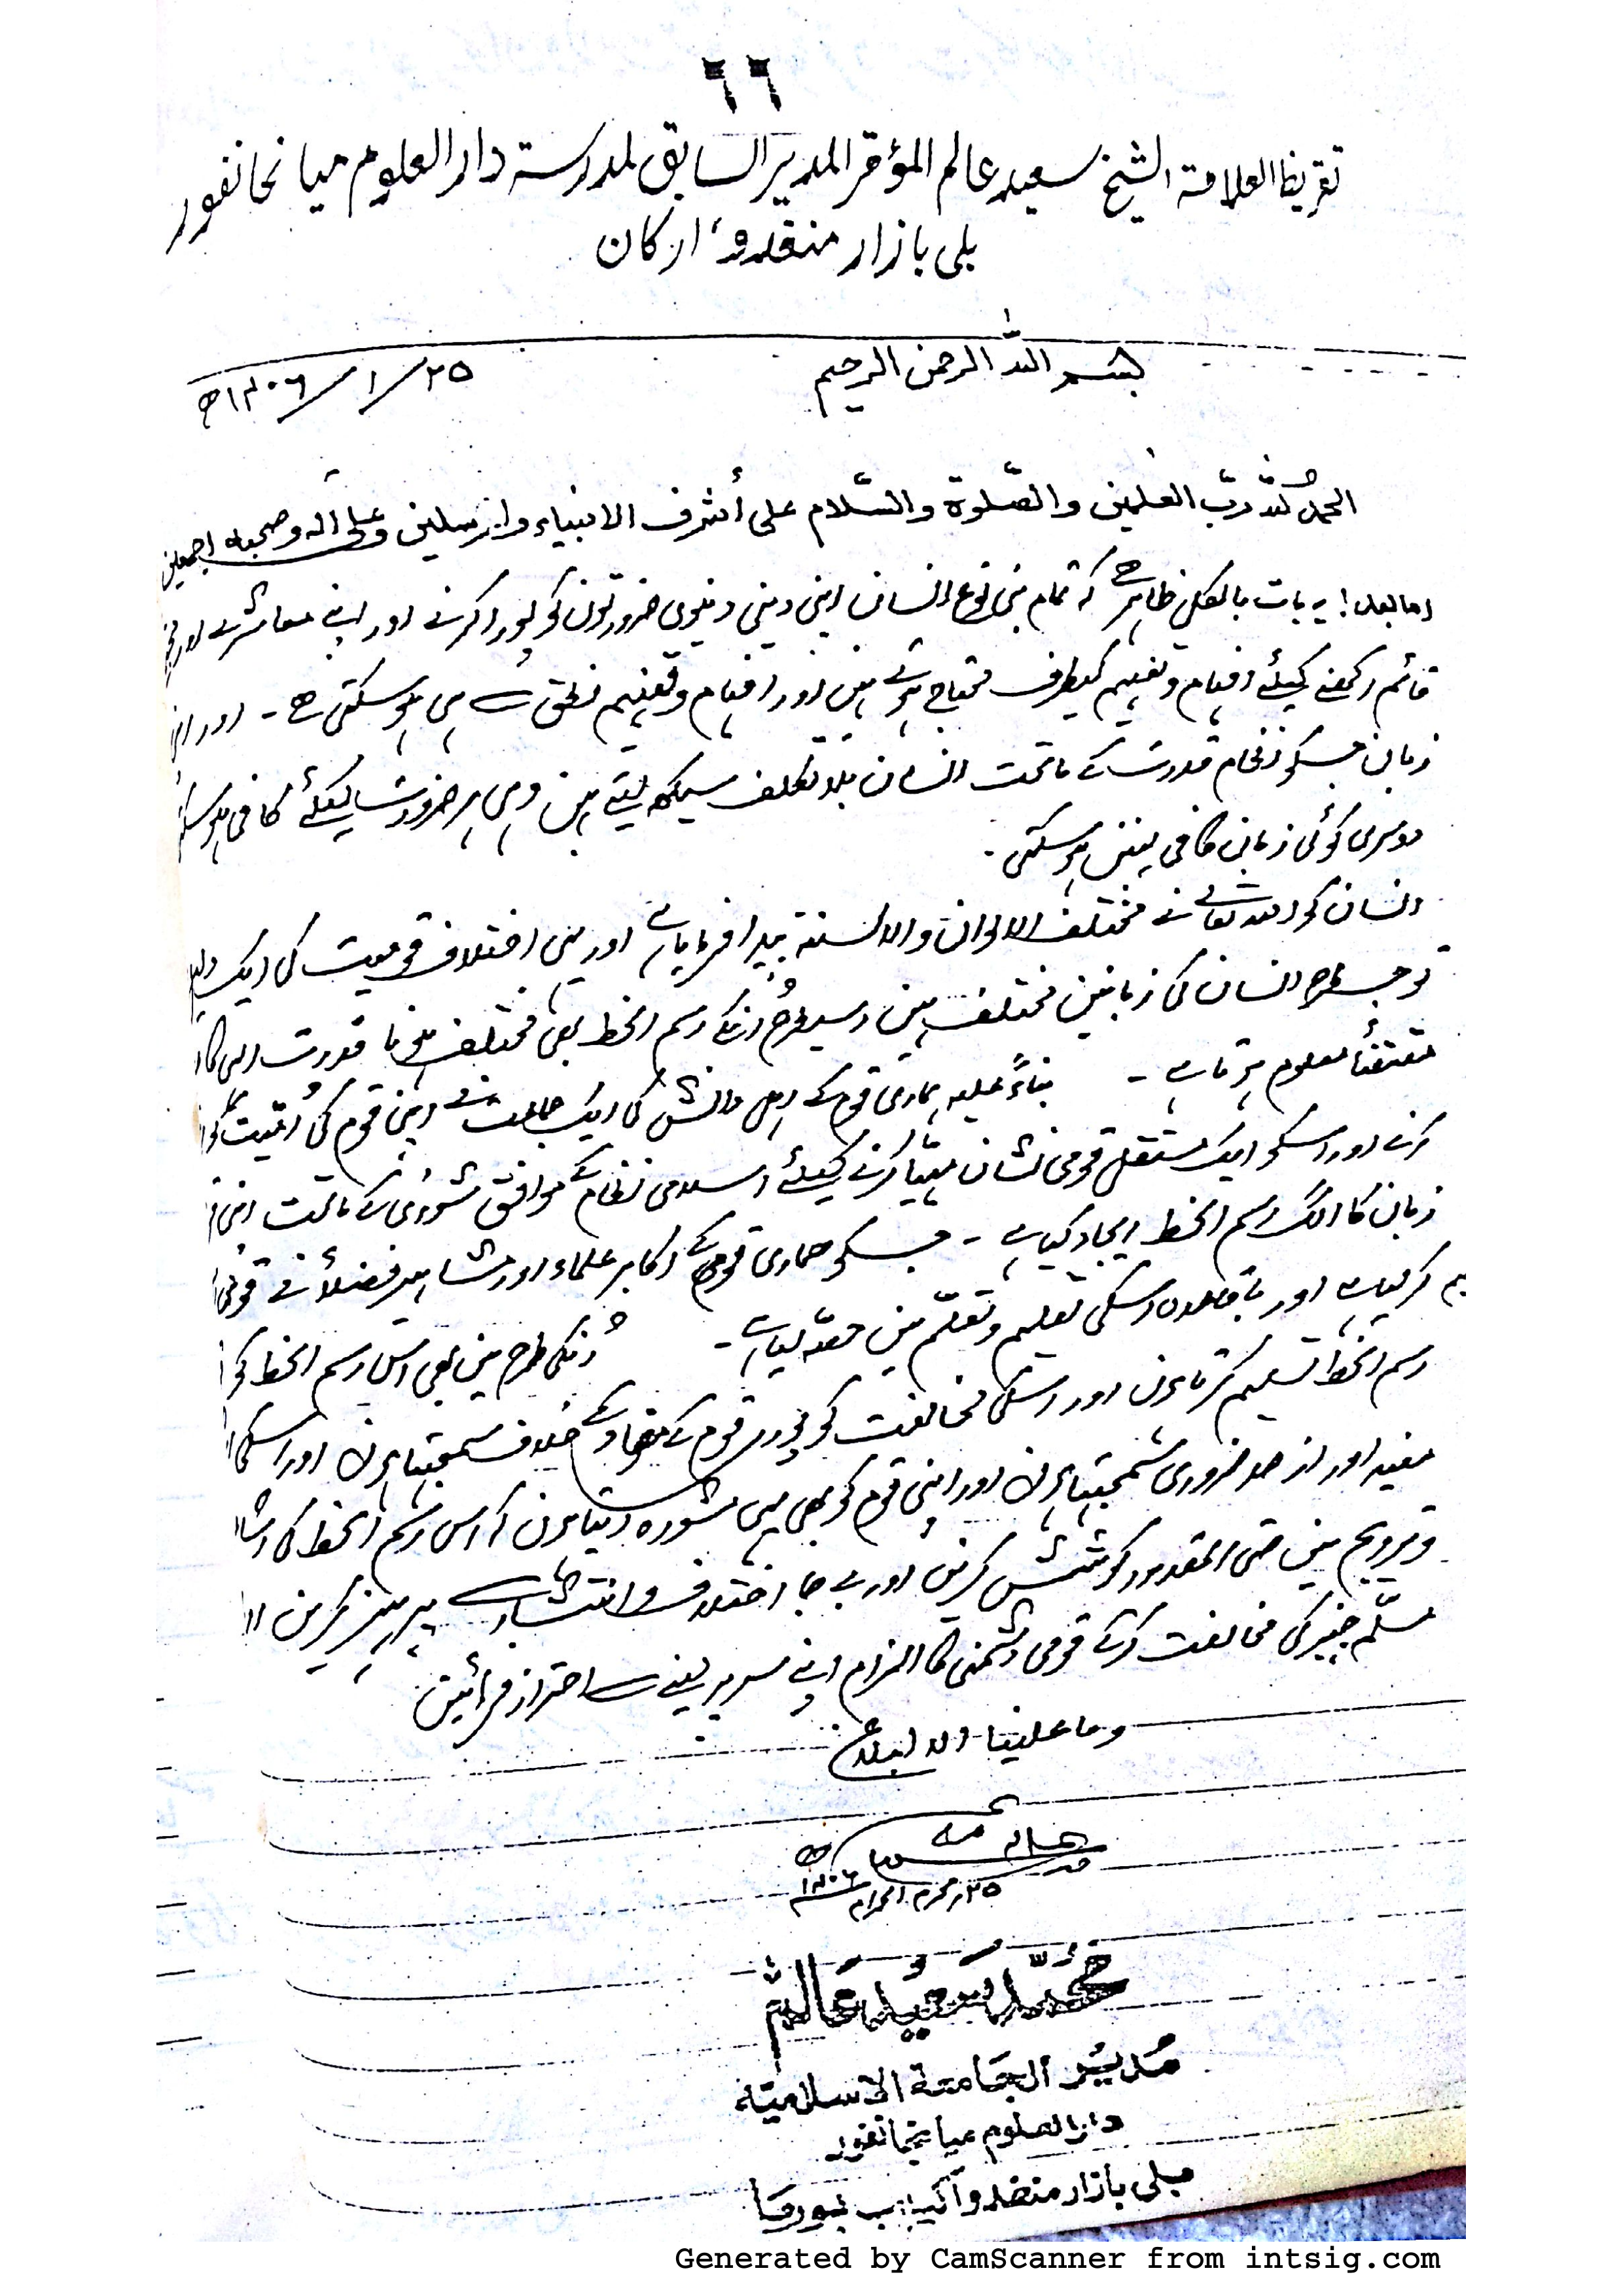 ٦٦
تقريظ العلامة الشيخ سعيد عالم المؤقر المدير السابق لمدرسة دار العلوم ميانحانفور
بلى بازار منقدو، اركان
بسم اللہ الرحمن الرحیم
۲۵/۱/۱۴۰۶ھ
الحمدُ للہ ربّ العلمين والصّلوة والسّلام على أشرف الانبياء والمرسلين وعلى آله وصحبه اجمعين
اما بعد! یہ بات بالکل ظاہر ہے کہ تمام بنی نوع انسان اپنی دینی دنیوی ضرورتوں کو پورا کرنے اور اپنے معاشرے اور
قائم رکھنے کیلئے افہام وتفہیم کیطرف محتاج ہوتے ہیں اور افہام وتفہیم نطق سے ہی ہو سکتی ہے ۔ اور
زبان جسکو نظام قدرت کے ماتحت انسان بلا تکلف سیکھ لیتے ہیں وہی ہر ضرورت کیلئے کافی ہو سکتی
دوسری کوئی زبان کافی نہیں ہو سکتی ۔
انسان کو اللہ تعالے نے مختلف الالوان والالسنۃ پیدا فرمایا ہے اور یہی اختلاف قومیت کی ایک
تو جسطرح انسان کی زبانیں مختلف ہیں اسیطرح انکے رسم الخط بھی مختلف ہونا قدرت الہی کا
مقتضٰی معلوم ہوتا ہے ۔ بناءً علیہ ہماری قوم کے اہل دانش کی ایک جماعت نے اپنی قوم کی
کرنے اور اسکو ایک مستقل قومی نشان مہیّا کرنے کیلئے اسلامی نظام کے موافق شوریٰ کے ماتحت اپنی
زبان کا الگ رسم الخط ایجاد کیا ہے ۔ جسکو ہماری قوم کے اکابر علماء اور مشاہیر فضلاء نے
کر لیا ہے اور باقاعدہ اسکی تعلیم وتعلّم میں حصّہ لیا ہے ۔ اُنکی طرح میں بھی اس رسم الخط کو
رسم الخط تسلیم کرتا ہوں اور اسکی مخالفت کو پورے قوم کے مفاد کے خلاف سمجھتا ہوں اور اسکی
مفید اور از حد ضروری سمجھتا ہوں اور اپنی قوم کو بھی یہی مشورہ دیتا ہوں کہ اس رسم الخط کی
وترویج میں حتی المقدور کوشش کریں اور بے جا اختلاف وانتشار سے پرہیز کریں
مسلّم چیز کی مخالفت کرکے قومی دشمنی کا الزام اپنے سر پر لینے سے احتراز فرمائیں
وما علینا الا البلاغ
۲۵ محرم الحرام ۱۴۰۶ھ
مُحَمَّد سَعِيد عَالَم
مُديرُ الجَامعة الاسلاميّة
دار العلوم ميانجانفور
بلى بازار منقدو اکیاب بورما
Generated by CamScanner from intsig.com